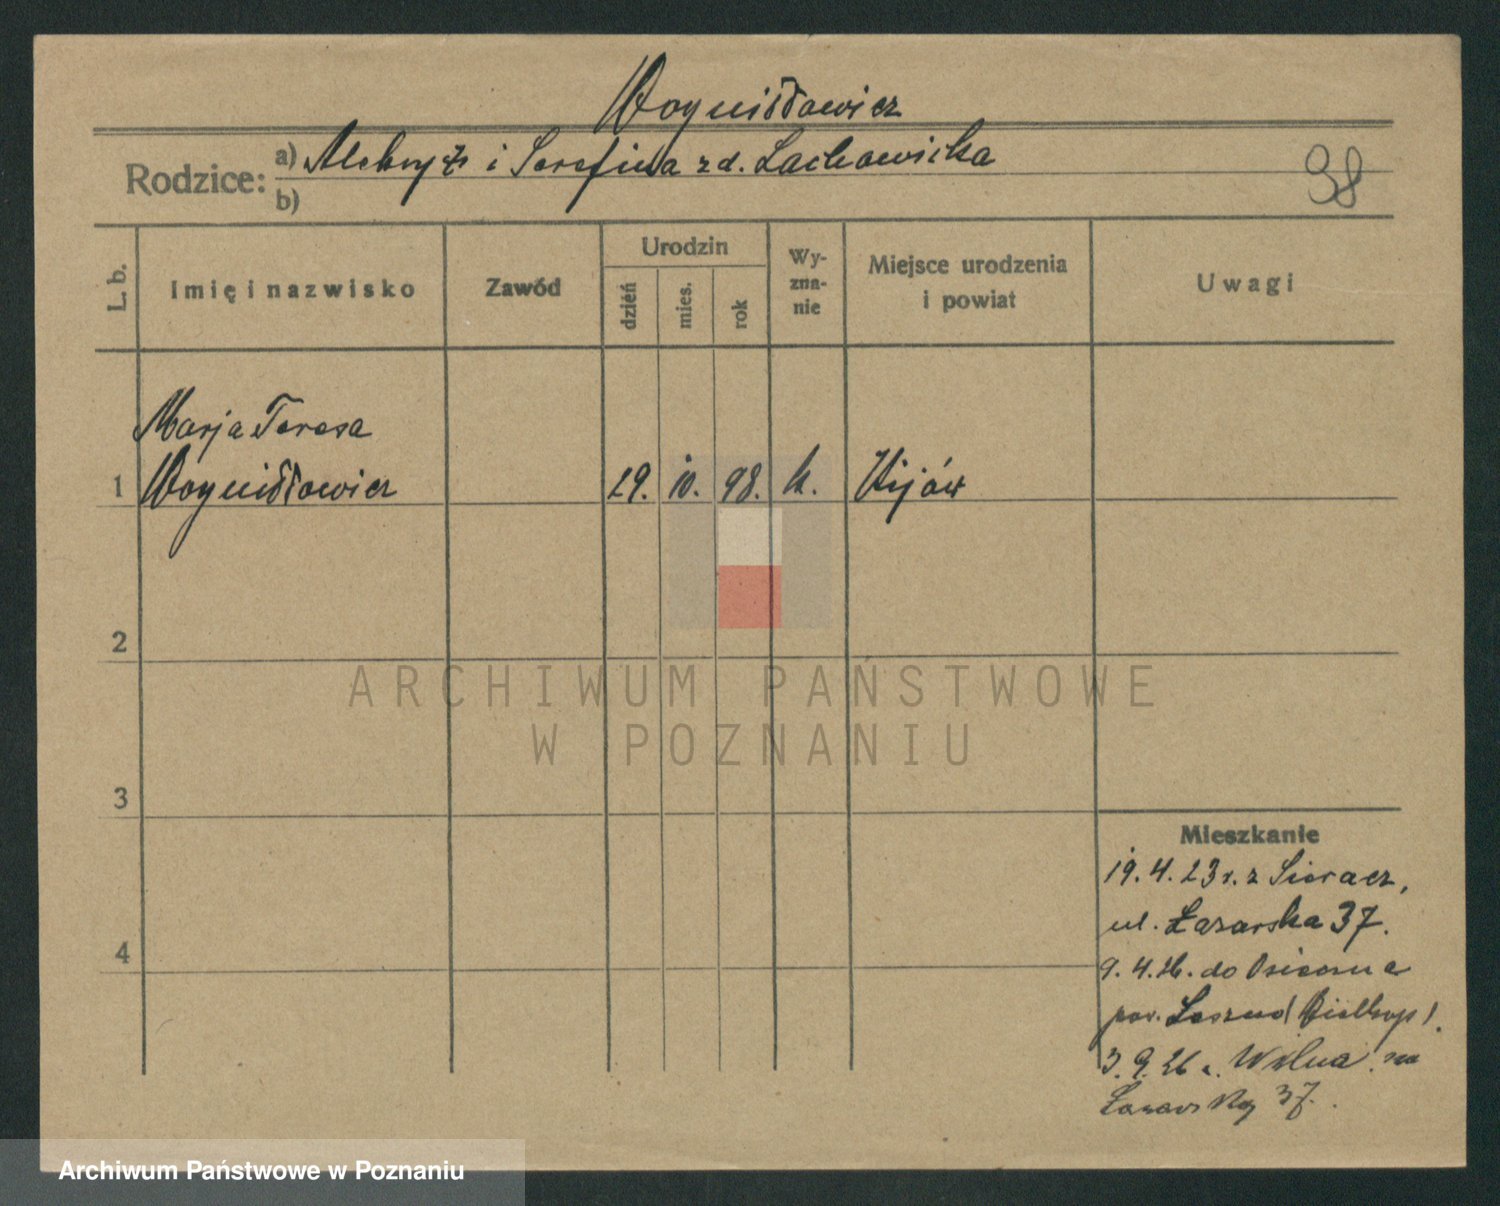 Woyniłłowicz
Rodzice: a) i Serafina z d. Lachowicka
b)
38
L. b.
Imię i nazwisko
Zawód
Urodzin
dzień
mies.
rok
Wy-
zna-
nie
Miejsce urodzenia
i powiat
Uwagi
Marja Teresa
1 Woyniłłowicz 29. 10. 98. k. Kijów
2
3
4
ARCHIWUM PAŃSTWOWE
W POZNANIU
Mieszkanie
19. 4. 23 r. z Sieracz,
ul. Łazarska 37.
9. 4. 26. do
pow. Leszno
3. 9. 26 z Wilna na
Łazarską 37.
Archiwum Państwowe w Poznaniu